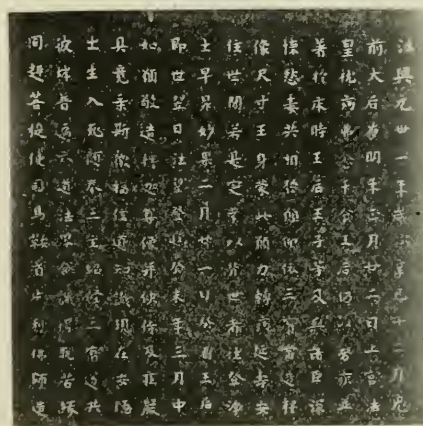 法興元卅一年歲次辛巳十二月鬼
前太后崩明年正月廿二日上宮法
皇枕病弗悆干食王后仍以勞疾並
著於床時王后王子等及與諸臣深
懷愁毒共相發願仰依三寶當造釋
像尺寸王身蒙此願力轉病延壽安
住世間若是定業以背世者往登淨
土早昇妙果二月廿一日癸酉王后
即世翌日法皇登遐癸未年三月中
如願敬造釋迦尊像并俠侍及莊嚴
具竟乘斯微福信道知識現在安隱
出生入死隨奉三主紹隆三寶遂共
彼岸普遍六道法界含識得脫苦緣
同趣菩提使司馬鞍首止利佛師造